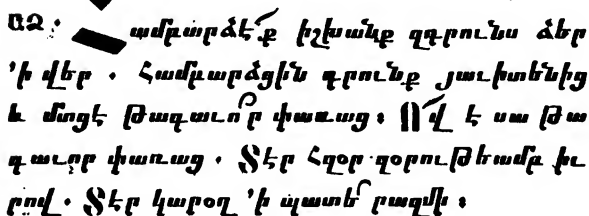 ԱՁ։ ամբարձէ՜ք իշխանք զդրունս ձեր
՚ի վեր . Համբարձցին դրունք յաւիտենից
և մտցէ թագաւո՛ր փառաց ։ Ո՜վ է սա թա
գաւոր փառաց . Տէր հզօր զօրութեամբ իւ
րով . Տէր կարօղ ՚ի պատերազմի ։